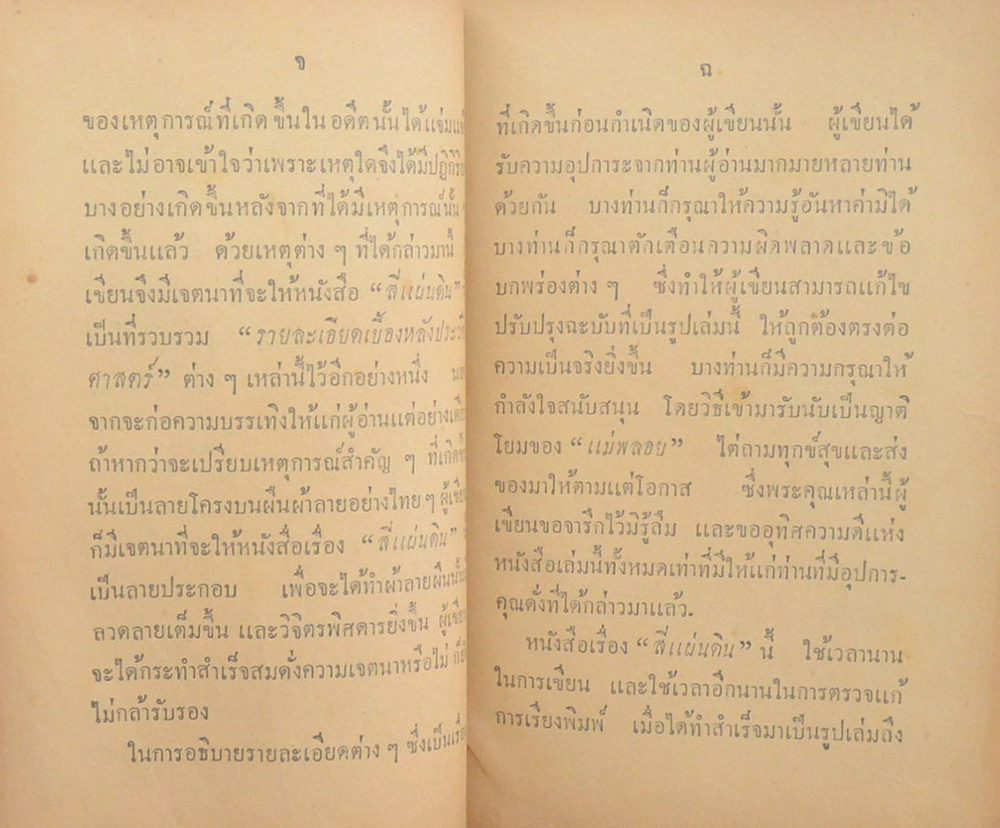 จ
ของเหตุการณ์ที่เกิดขึ้นในอดีตนั้นได้แจ่มแจ้ง
และไม่อาจเข้าใจว่าเพราะเหตุใดจึงได้มีปฏิกิริ
บางอย่างเกิดขึ้นหลังจากที่ได้มีเหตุการณ์นั้น ๆ
เกิดขึ้นแล้ว ด้วยเหตุต่าง ๆ ที่ได้กล่าวมานี้
เขียนจึงมีเจตนาที่จะให้หนังสือ “สี่แผ่นดิน”
เป็นที่รวบรวม “รายละเอียดเบื้องหลังประวัติ
ศาสตร์” ต่าง ๆ เหล่านี้ไว้อีกอย่างหนึ่ง
จากจะก่อความบรรเทิงให้แก่ผู้อ่านแต่อย่างเดียว
ถ้าหากว่าจะเปรียบเหตุการณ์สำคัญ ๆ ที่เกิดขึ้น
นั้นเป็นลายโครงบนผืนผ้าลายอย่างไทยๆ ผู้เขียน
ก็มีเจตนาที่จะให้หนังสือเรื่อง “สี่แผ่นดิน”
เป็นลายประกอบ เพื่อจะได้ทำผ้าลายผืนนั้น
ลวดลายเต็มขึ้น และวิจิตรพิสดารยิ่งขึ้น ผู้เขียน
จะได้กระทำสำเร็จสมดั่งความเจตนาหรือไม่ ก็ยัง
ไม่กล้ารับรอง
ในการอธิบายรายละเอียดต่าง ๆ ซึ่งเป็นเรื่อง
ฉ
ที่เกิดขึ้นก่อนกำเนิดของผู้เขียนนั้น ผู้เขียนได้
รับความอุปการะจากท่านผู้อ่านมากมายหลายท่าน
ด้วยกัน บางท่านก็กรุณาให้ความรู้อันหาค่ามิได้
บางท่านก็กรุณาตักเตือนความผิดพลาดและข้อ
บกพร่องต่าง ๆ ซึ่งทำให้ผู้เขียนสามารถแก้ไข
ปรับปรุงฉะบับที่เป็นรูปเล่มนี้ ให้ถูกต้องตรงต่อ
ความเป็นจริงยิ่งขึ้น บางท่านก็มีความกรุณาให้
กำลังใจสนับสนุน โดยวิธีเข้ามารับนับเป็นญาติ
โยมของ “แม่พลอย” ไต่ถามทุกข์สุขและส่ง
ของมาให้ตามแต่โอกาส ซึ่งพระคุณเหล่านี้ผู้
เขียนขอจารึกไว้มิรู้ลืม และขออุทิศความดีแห่ง
หนังสือเล่มนี้ทั้งหมดเท่าที่มีให้แก่ท่านที่มีอุปการ-
คุณดั่งที่ได้กล่าวมาแล้ว.
หนังสือเรื่อง “สี่แผ่นดิน” นี้ ใช้เวลานาน
ในการเขียน และใช้เวลาอีกนานในการตรวจแก้
การเรียงพิมพ์ เมื่อได้ทำสำเร็จมาเป็นรูปเล่มถึง